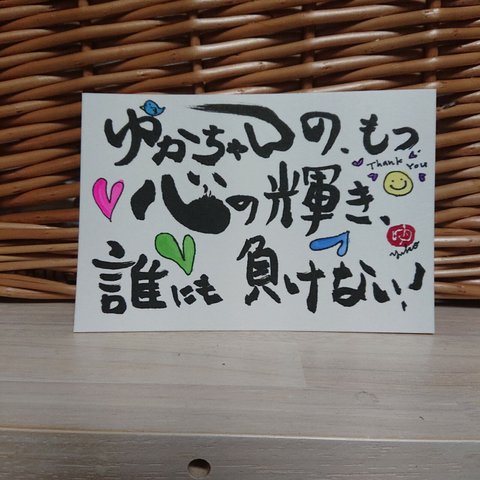 ゆかちゃんの、もつ
Thank you
心の輝き、
誰にも負けない!